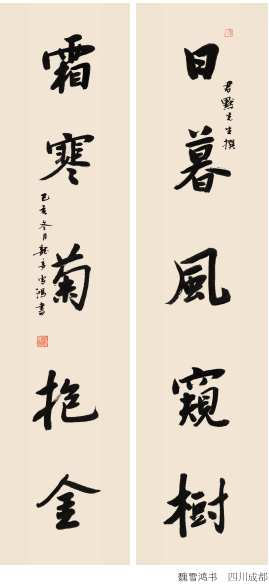 日暮風窺樹
君默先生撰
霜寒菊抱金
己亥冬月魏雪鴻書
魏雪鸿书 四川成都